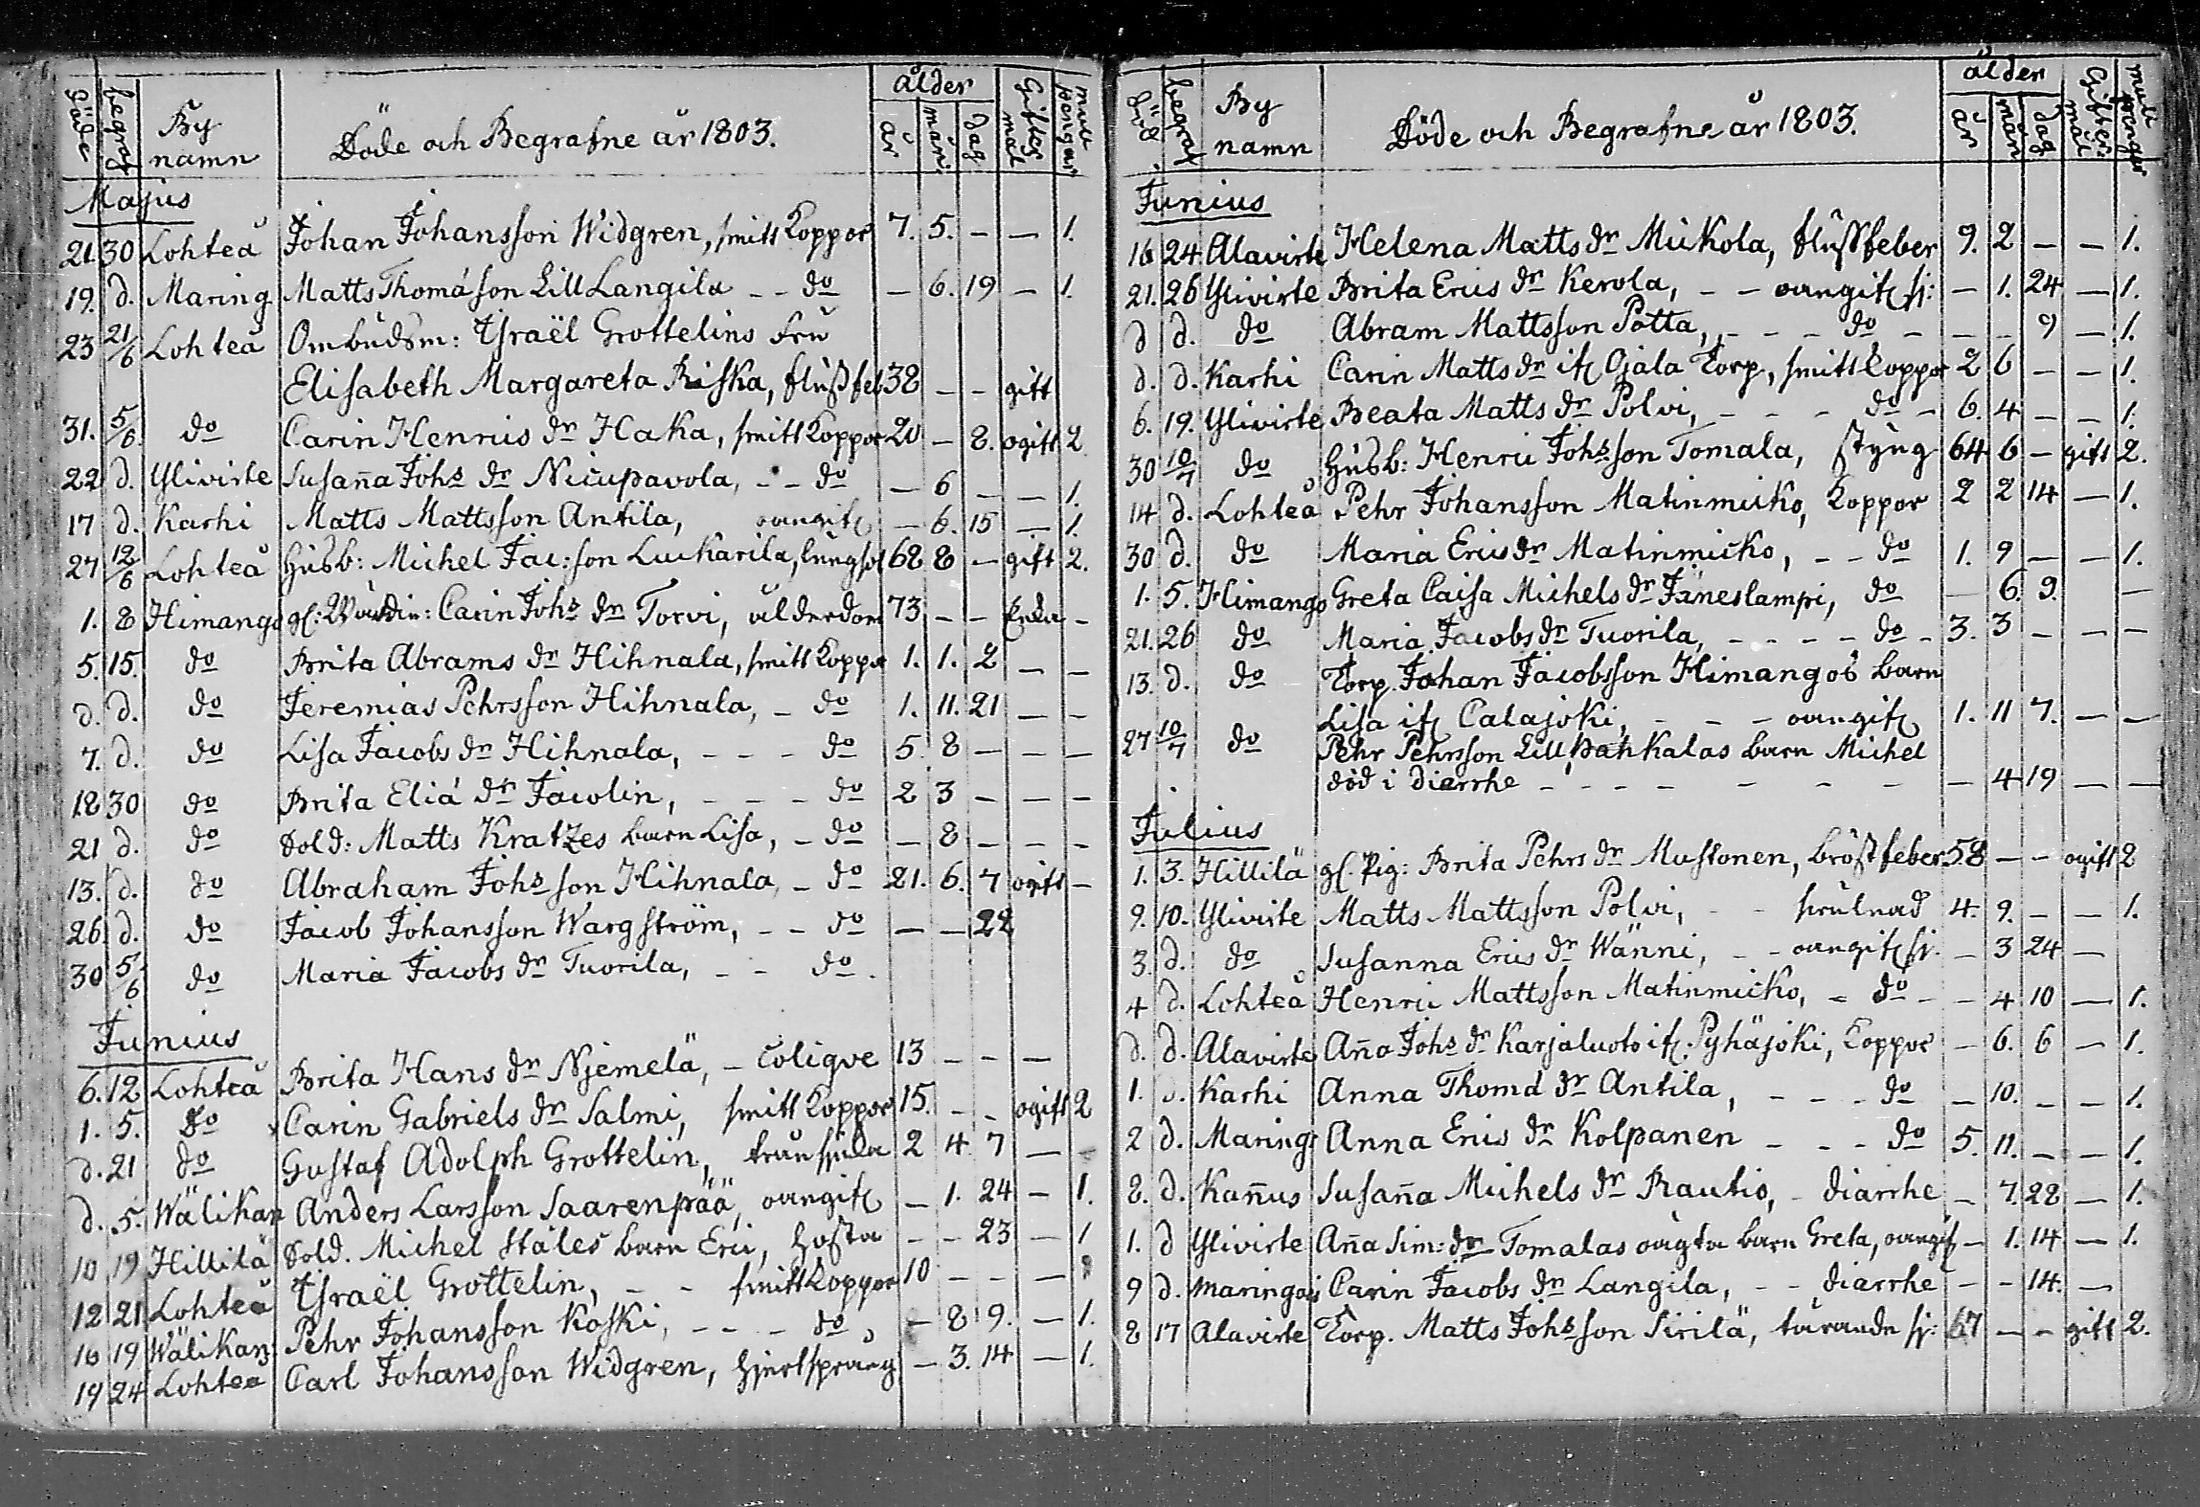 döde begraf By namn Döde och Begrafne år 1803. ålder år mån: dag Giftermål mull pengar
Majus
21. 30 Lohteå Johan Johansson Widgren, smitt Koppor 7. 5. — — 1.
19. d. Maring Matts Thomæson Lill Langila - - do — 6. 19 — 1.
23 21/6 Lohteå Ombudsm: Israël Grottelins Fru
Elisabeth Margareta Riska, flussfeb 38 — — gift
31. 5/6 do Carin Henrics dr Haka, smitt Koppor 20 — 8. ogift 2
22 d. Ylivirte Susaña Johs dr Nicupavola, - - do — 6 — — 1.
17 d. Karhi Matts Mattsson Antila, oangif — 6. 15 — 1.
27 12/6 Lohteå Husb: Michel Jac:son Luckarila, lungsot 68 8 — gift 2.
1. 8 Himango gl: Wärdin: Carin Johs dr Torvi, ålderdom 73 — — Enka -
5. 15. do Brita Abrams dr Hihnala, smitt Koppor 1. 1. 2 — —
d. d. do Jeremias Pehrsson Hihnala, - do 1. 11. 21 — —
7. d. do Lisa Jacobs dr Hihnala, - - - do 5 8 — — —
18 30 do Brita Eliæ dr Jacolin, - - - do 2 3 — — —
21 d. do Sold: Matts Kratzes barn Lisa, - do — 8 — — -
13. d. do Abraham Johs son Hihnala, - do 21. 6. 7 ogift —
26 d. do Jacob Johansson Wargström, - - do — — 22
30 5/6 do Maria Jacobs dr Tuorila, - - do.
Junius
6. 12 Lohteå Brita Hans dr Njemelä, - Colique 13 — — —
1. 5. do Carin Gabriels dr Salmi, smitt Koppor 15. — — ogift 2
d. 21 do Gustaf Adolph Grottelin, 2 4 7 —
d. 5. Wälikan Anders Larsson Saarenpää, oangif — 1. 24 — 1.
10 19 Hillilä Sold. Michel Ståles barn Eric, hosta — - 23 — 1
12 21 Lohteå Israël Grottelin, - - smitt Koppor 10 — — —
16 19 Wälikan: Pehr Johansson Koski, - - - do — 8 9. — 1.
19 24 Lohteå Carl Johansson Widgren, hjertsprång — 3. 14 — 1.
död begraf By namn Döde och Begrafne år 1803. ålder år mån dag Gifter: mål mull penngar
Junius
16 24 Alavirte Helena Matts dr Mickola, flussfeber 9. 2 — — 1.
21. 26 Ylivirte Brita Erics dr Kerola, - - oangif sj: — 1. 24 — 1.
d d. do Abram Mattsson Potta, - - - do - — — 9 — 1.
d. d. Karhi Carin Matts dr if Ojala Torp, smitt Koppor 2 6 — — 1.
6. 19. Ylivirte Beata Matts dr Polvi, - - - do - 6. 4 — — 1.
30 10/7 do Husb: Henric Johs son Tomala, styng 64 6 — gift 2.
14 d. Lohteå Pehr Johansson Matinmicko, Koppor 2 2 14 — 1.
30 d. do Maria Erics dr Matinmicko, - - do 1. 9 — — 1.
1. 5. Himango Greta Caisa Michels dr Jäneslampi, do — 6. 9. —
21. 26 do Maria Jacobs dr Tuorila, - - - - do - 3. 3 — — —
13. d. do Torp. Johan Jacobsson Himangos barn
Lisa if Calajoki, - - - oangif 1. 11 7. — —
27 10/7 do Pehr Pehrsson Lill Pahkalas barn Michel
död i diarrhe - - - - - - - — 4 19 — —
Julius
1. 3. Hillilä gl. Pig: Brita Pehrs dr Mustonen, bröstfeber 58 — — ogift 2
9. 10. Ylivirte Matts Mattsson Polvi, - - 4. 9. — — 1.
3. d. do Susanna Erics dr Wänni, - - oangif sj. — 3 24 —
4 d. Lohteå Henric Mattsson Matinmicko, - do - — 4 10 — 1.
d. d. Alavirte Aña Johs dr Karjaluoto if: Pyhäjoki, Koppor — 6. 6 — 1.
1. d. Karhi Anna Thomæ dr Antila, - - - do — 10. — — 1.
2 d. Maring Anna Erics dr Kolpanen - - - do 5. 11. — — 1.
8. d. Kañus Susaña Michels dr Rautio, - diarrhe — 7. 28 — 1.
1. d Ylivirte Aña Sim: dr Tomalas oägta barn Greta, oangif — 1. 14 — 1.
9 d. Maringais Carin Jacobs dr Langila, - - diarrhe — — 14. —
8 17 Alavirte Torp. Matts Johs son Sirilä, tärande sj: 67 — — gift 2.